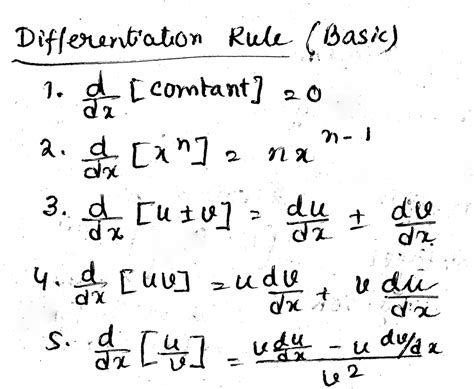 Differentiation Rule (Basic)
1. d/dx [constant] = 0
2. d/dx [x^n] = nx^(n-1)
3. d/dx [u ± v] = du/dx ± dv/dx
4. d/dx [uv] = u dv/dx + v du/dx
5. d/dx [u/v] = (v du/dx - u dv/dx)/v^2